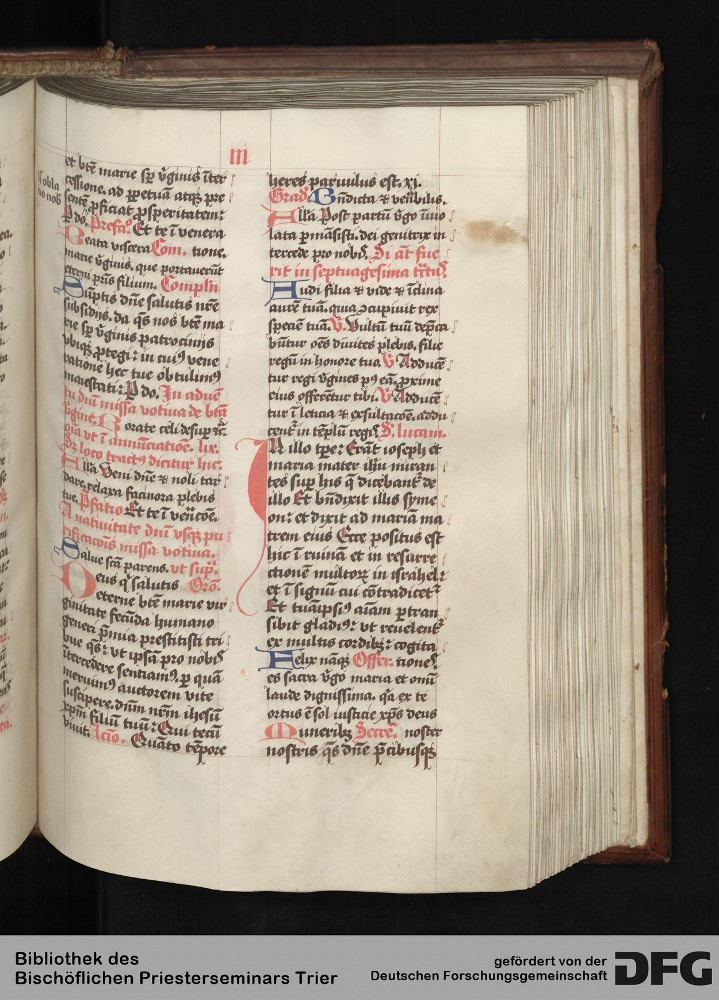 m
et bte marie sp vginis iter
cessione. ad ppetuā atqꝫ pre
sentē pficiat psperitatem:
P dō. Prefaᵒ. Et te ī venera
Beata viscera Com. tione.
marie vginis. que portauerūt
eterni pris filium. Complēn
Sūptis dne salutis nre
subsidijs. da qs nos bte ma
rie sp vginis patrocinijs
vbiqꝫ ptegi: in cuiꝰ vene
ratione hec tue obtulimꝰ
maiestati: P dō. In aduē
tu dni missa votiua de bta
vgine. Rorate celi desup ꝛc̄.
Alla Veni dne ⁊ noli tar
dare. relaxa facinora plebis
tue. Pfatio Et te ī venīcōe.
A natiuitate dni vsqꝫ pu
rificacōis missa votiua.
Salue scā parens. vt supᵃ.
Deus qͥ salutis Orō.
eterne bte marie vir
ginitate fecūda humano
generi pmia prestitisti tri
bue qs: vt ipsā pro nobis
ītercedere sentiamꝰ. p quā
meruimꝰ auctorem vite
suscipere. dnm nrm ihesū
xpm filiū tuū: Qui tecū
viuit. Lc̄io. Quāto tēpore
heres paruulus est. xj.
Grad. Bndicta ⁊ veñbilis.
Alla Post partū vgo īuio
lata pmāsisti. dei genitrix in
tercede pro nobis. Si aūt fue
rit in septuagesima tctus
Audi filia ⁊ vide ⁊ īclina
aurē tuā. quia ꝯcupiuit rex
speciē tuā. V. Vultū tuū depca
būtur oēs diuites plebis. filie
regū in honore tuo. V Adducē
tur regi vgines pꝰ eā. pxime
eius offerētur tibi. V Adducē
tur ī leticia ⁊ exsultacōe. addu
cent in tēplū regis S. lucam.
In illo tpe: Erāt ioseph et
maria mater ihu miran
tes sup his q dicebant de
illo Et bndixit illis syme
on: et dixit ad mariā ma
trem eius Ecce positus est
hic ī ruinā et in resurre
ctionē multorꝫ in israhel:
et ī signū cui cōtradicet
Et tuāipsiꝰ aīam ptran
sibit gladiꝰ: vt reuelent
ex multis cordibꝫ: cogita
Felix nāqꝫ Offer. tiones
es sacra vgo maria et omī
laude dignissima. qa ex te
ortus ē sol iusticie xps deus
Muneribꝫ Secre. noster
nostris qs dne pcibusqꝫ
Bibliothek des
Bischöflichen Priesterseminars Trier
gefördert von der
Deutschen Forschungsgemeinschaft
DFG